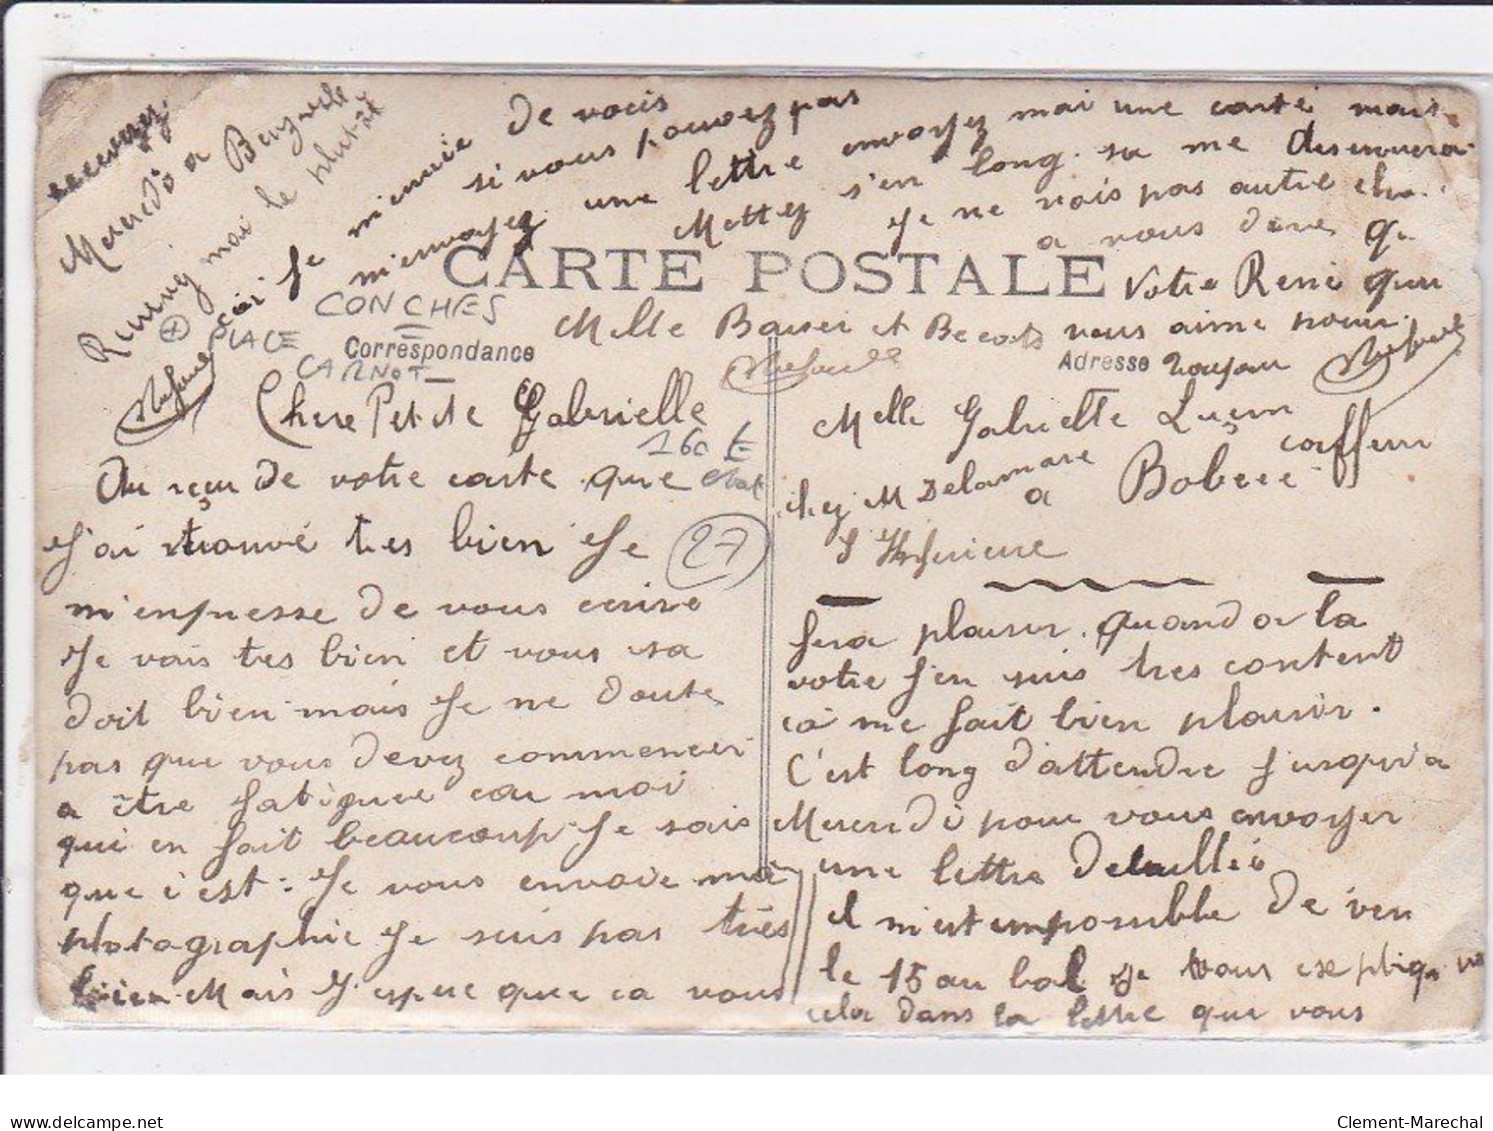 CARTE POSTALE
Correspondance
Adresse
CONCHES
PLACE
CARNOT
160 E
27
Chere Petite Gabrielle
Au reçu de votre carte que
J'ai trouvé tres bien Je
m'enpresse de vous ecrire
Je vais tres bien et vous sa
doit bien mais Je ne doute
pas que vous devez commencer
a être fatiguee car moi
qui en fait beaucoup Je sais
que c'est : Je vous envoie ma
photographie Je suis pas très
bien Mais J'espere que ca vous
Melle Gabrielle
chez M Delamare coiffeur
a Bolbec
S Inferieure
fera plaisir. quand a la
votre J'en suis tres content
ca me fait bien plaisir.
C'est long d'attendre Jusqu'a
Mercredi pour vous envoyer
une lettre detaillée
il m'est impossible de
le 15 au bal Je vous explique
cela dans la lettre que vous
recevrez
Mercredi a
moi le plutôt
Je m'ennuie de vous
si vous pouvez pas
m'envoyez une lettre envoyez moi une carte mais
Mettez s'en long. sa me desennuera
Je ne vois pas autre
a vous dire
Votre René qui
vous aime pour
toujours
Melle Baiser et Becots